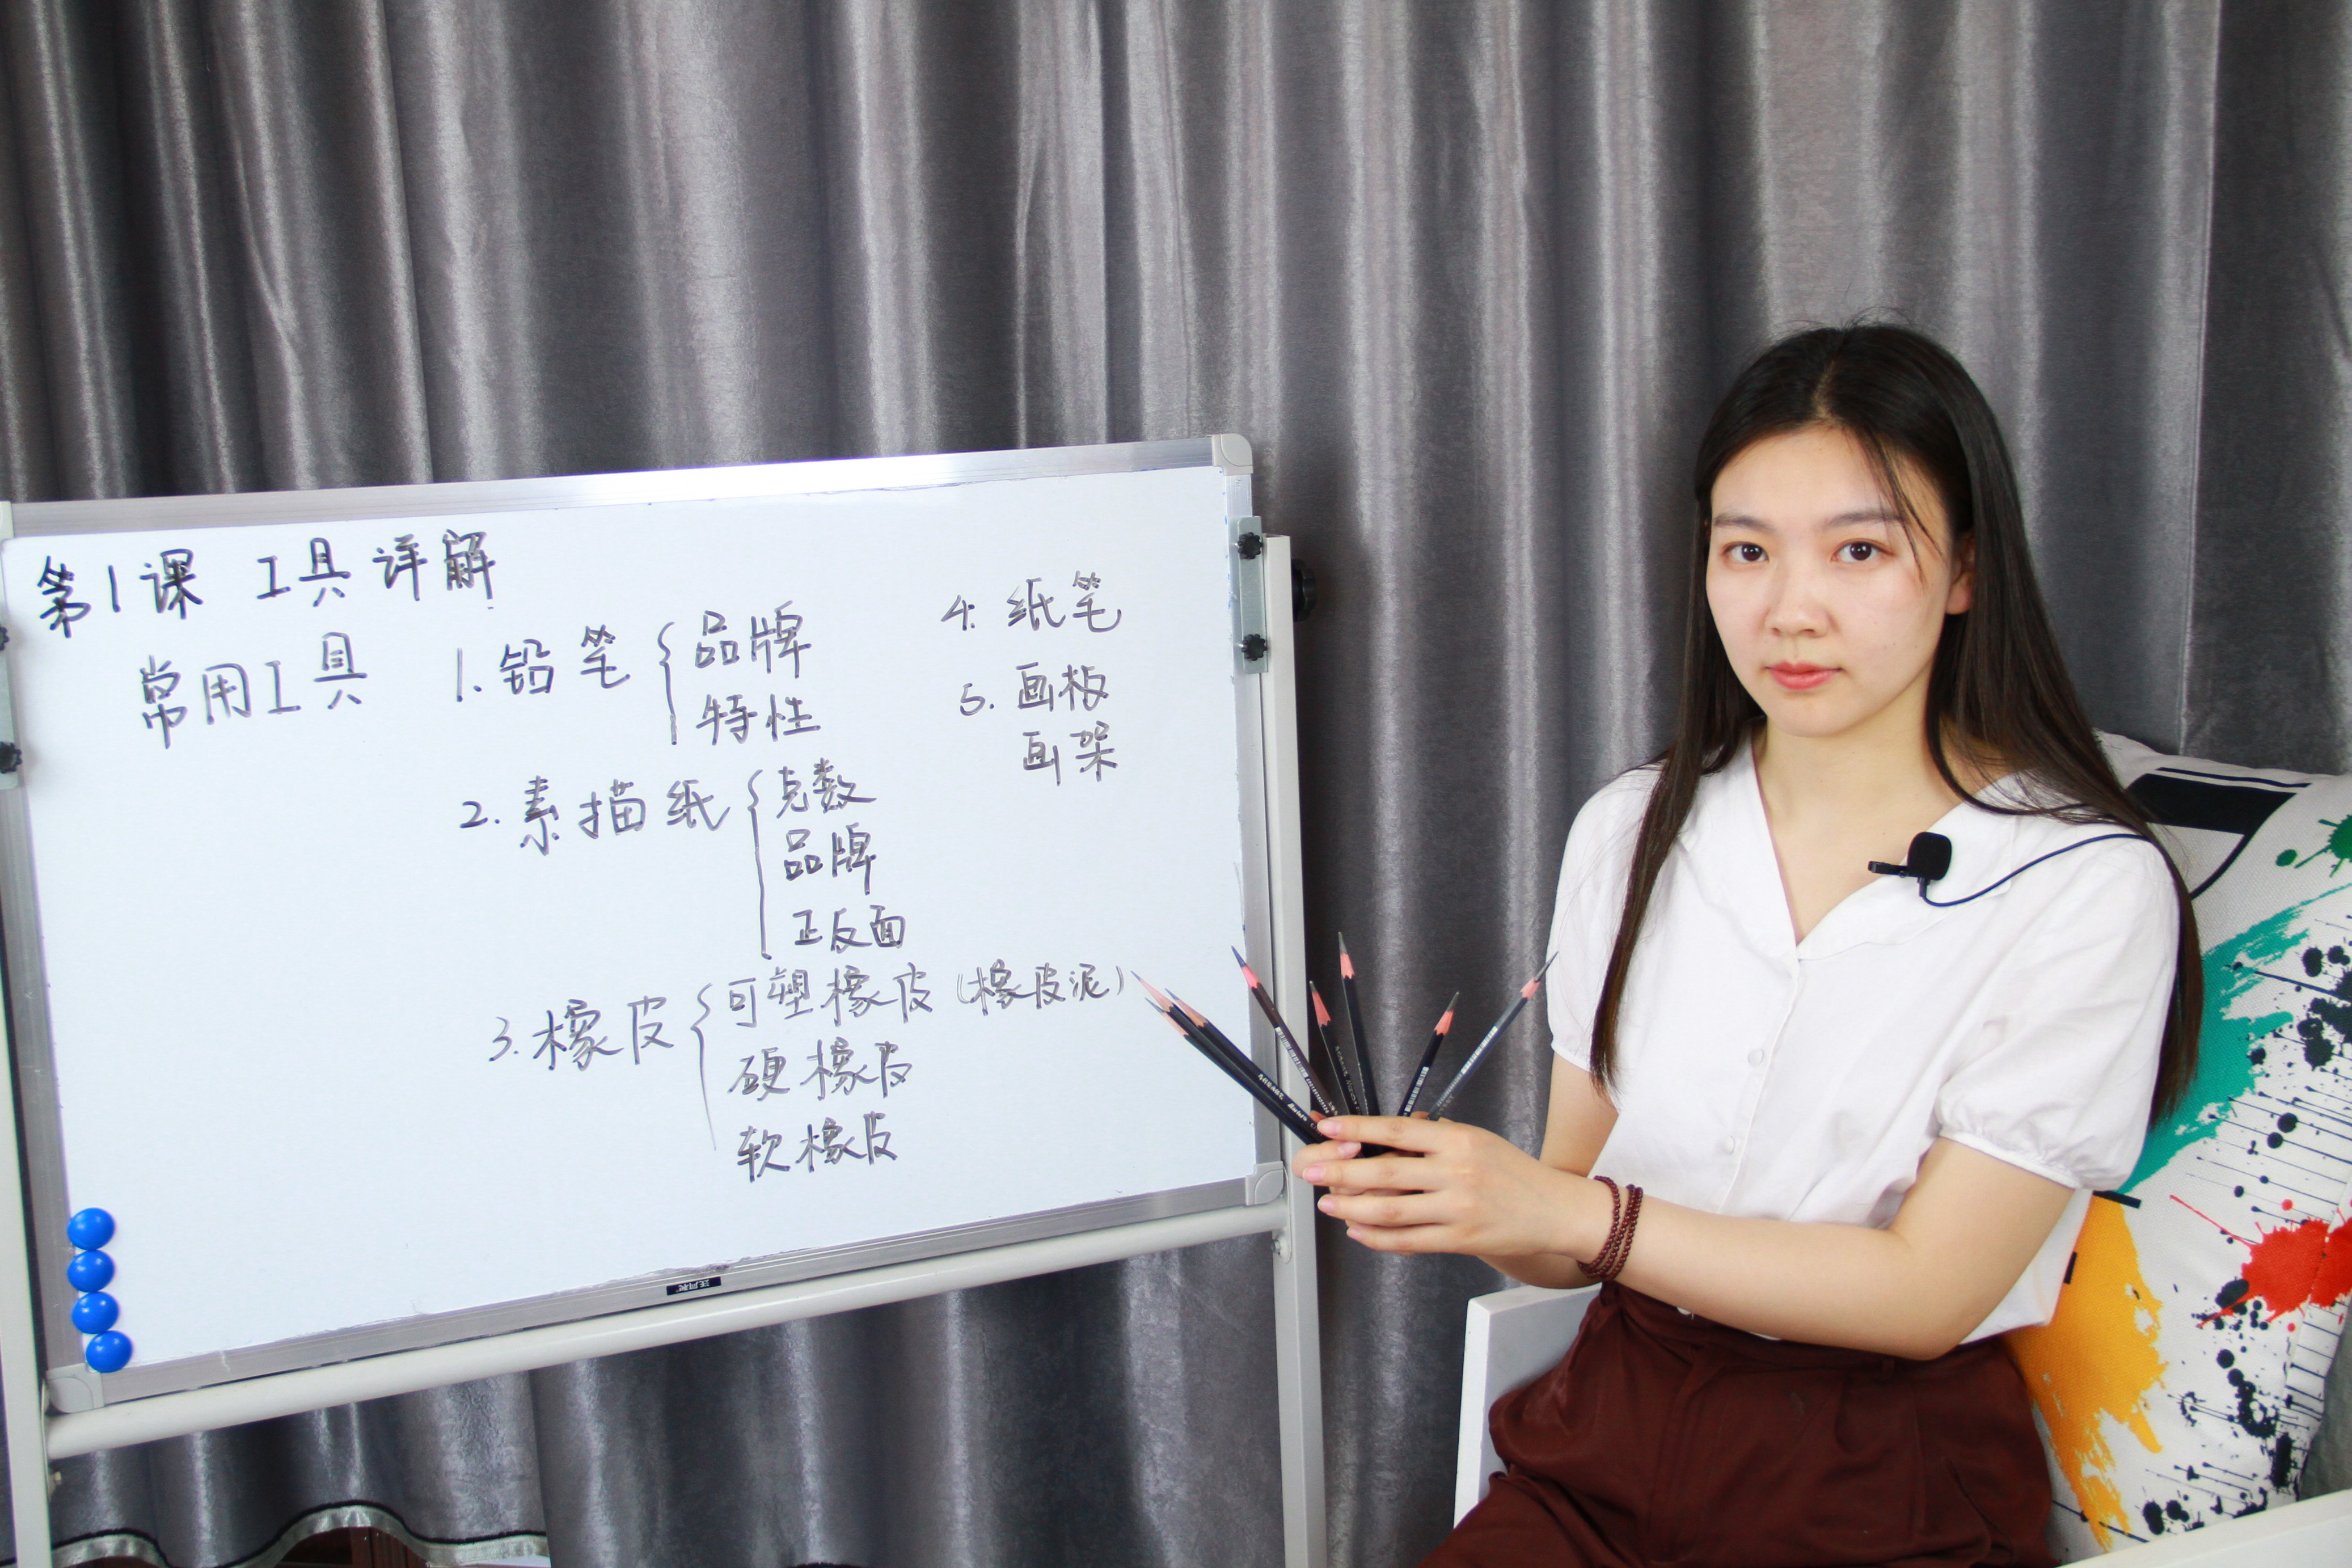 第1课 工具详解
常用工具 1.铅笔 { 品牌
特性
2.素描纸 { 克数
品牌
正反面
3.橡皮 { 可塑橡皮(橡皮泥)
硬橡皮
软橡皮
4.纸笔
5.画板
画架